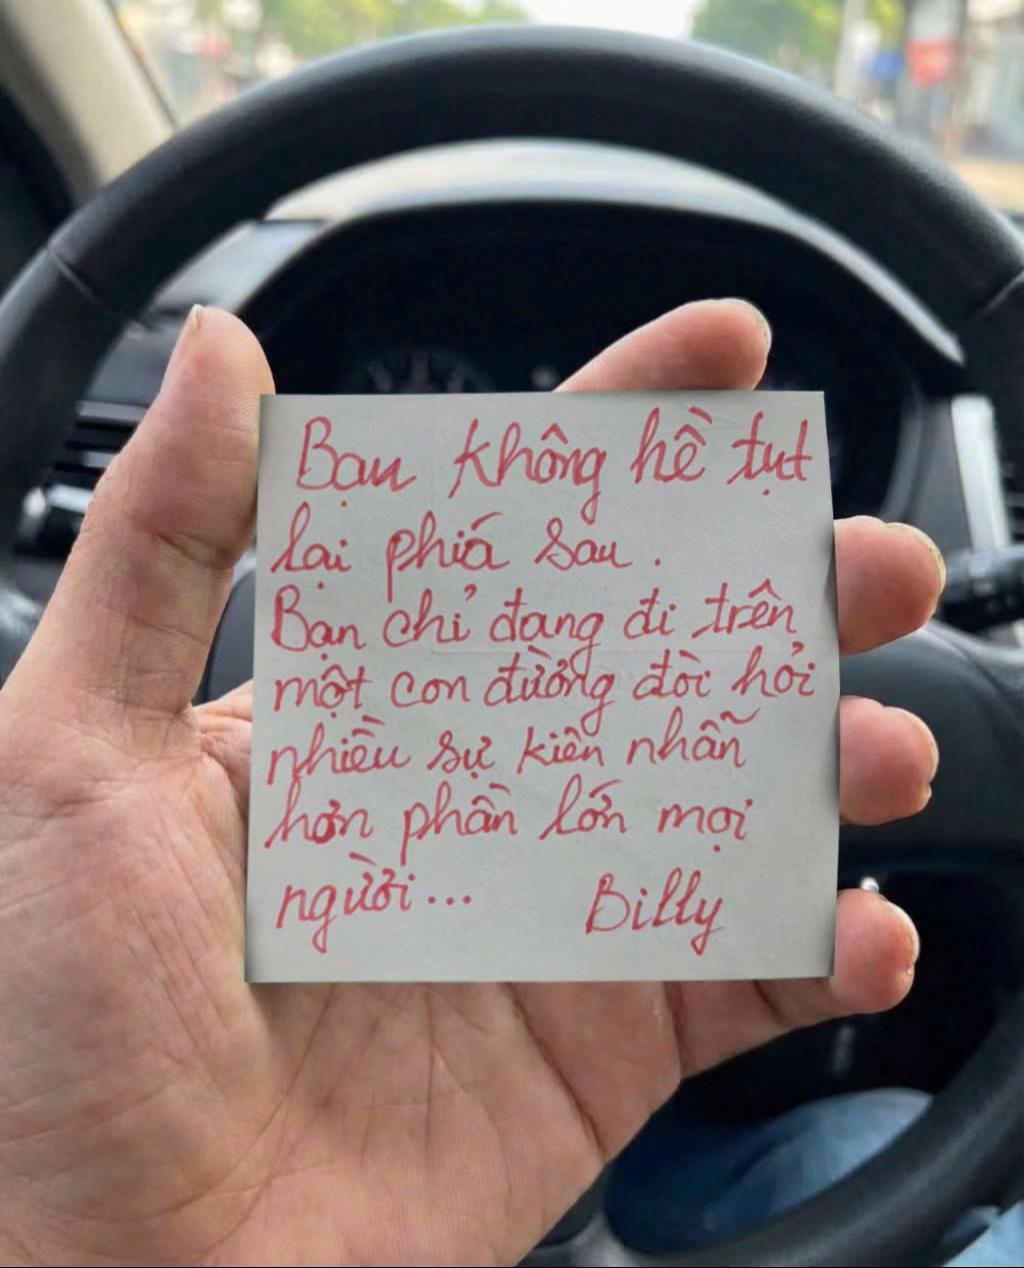 Bạn không hề tụt
lại phía sau.
Bạn chỉ đang đi trên
một con đường đòi hỏi
nhiều sự kiên nhẫn
hơn phần lớn mọi
người... Billy